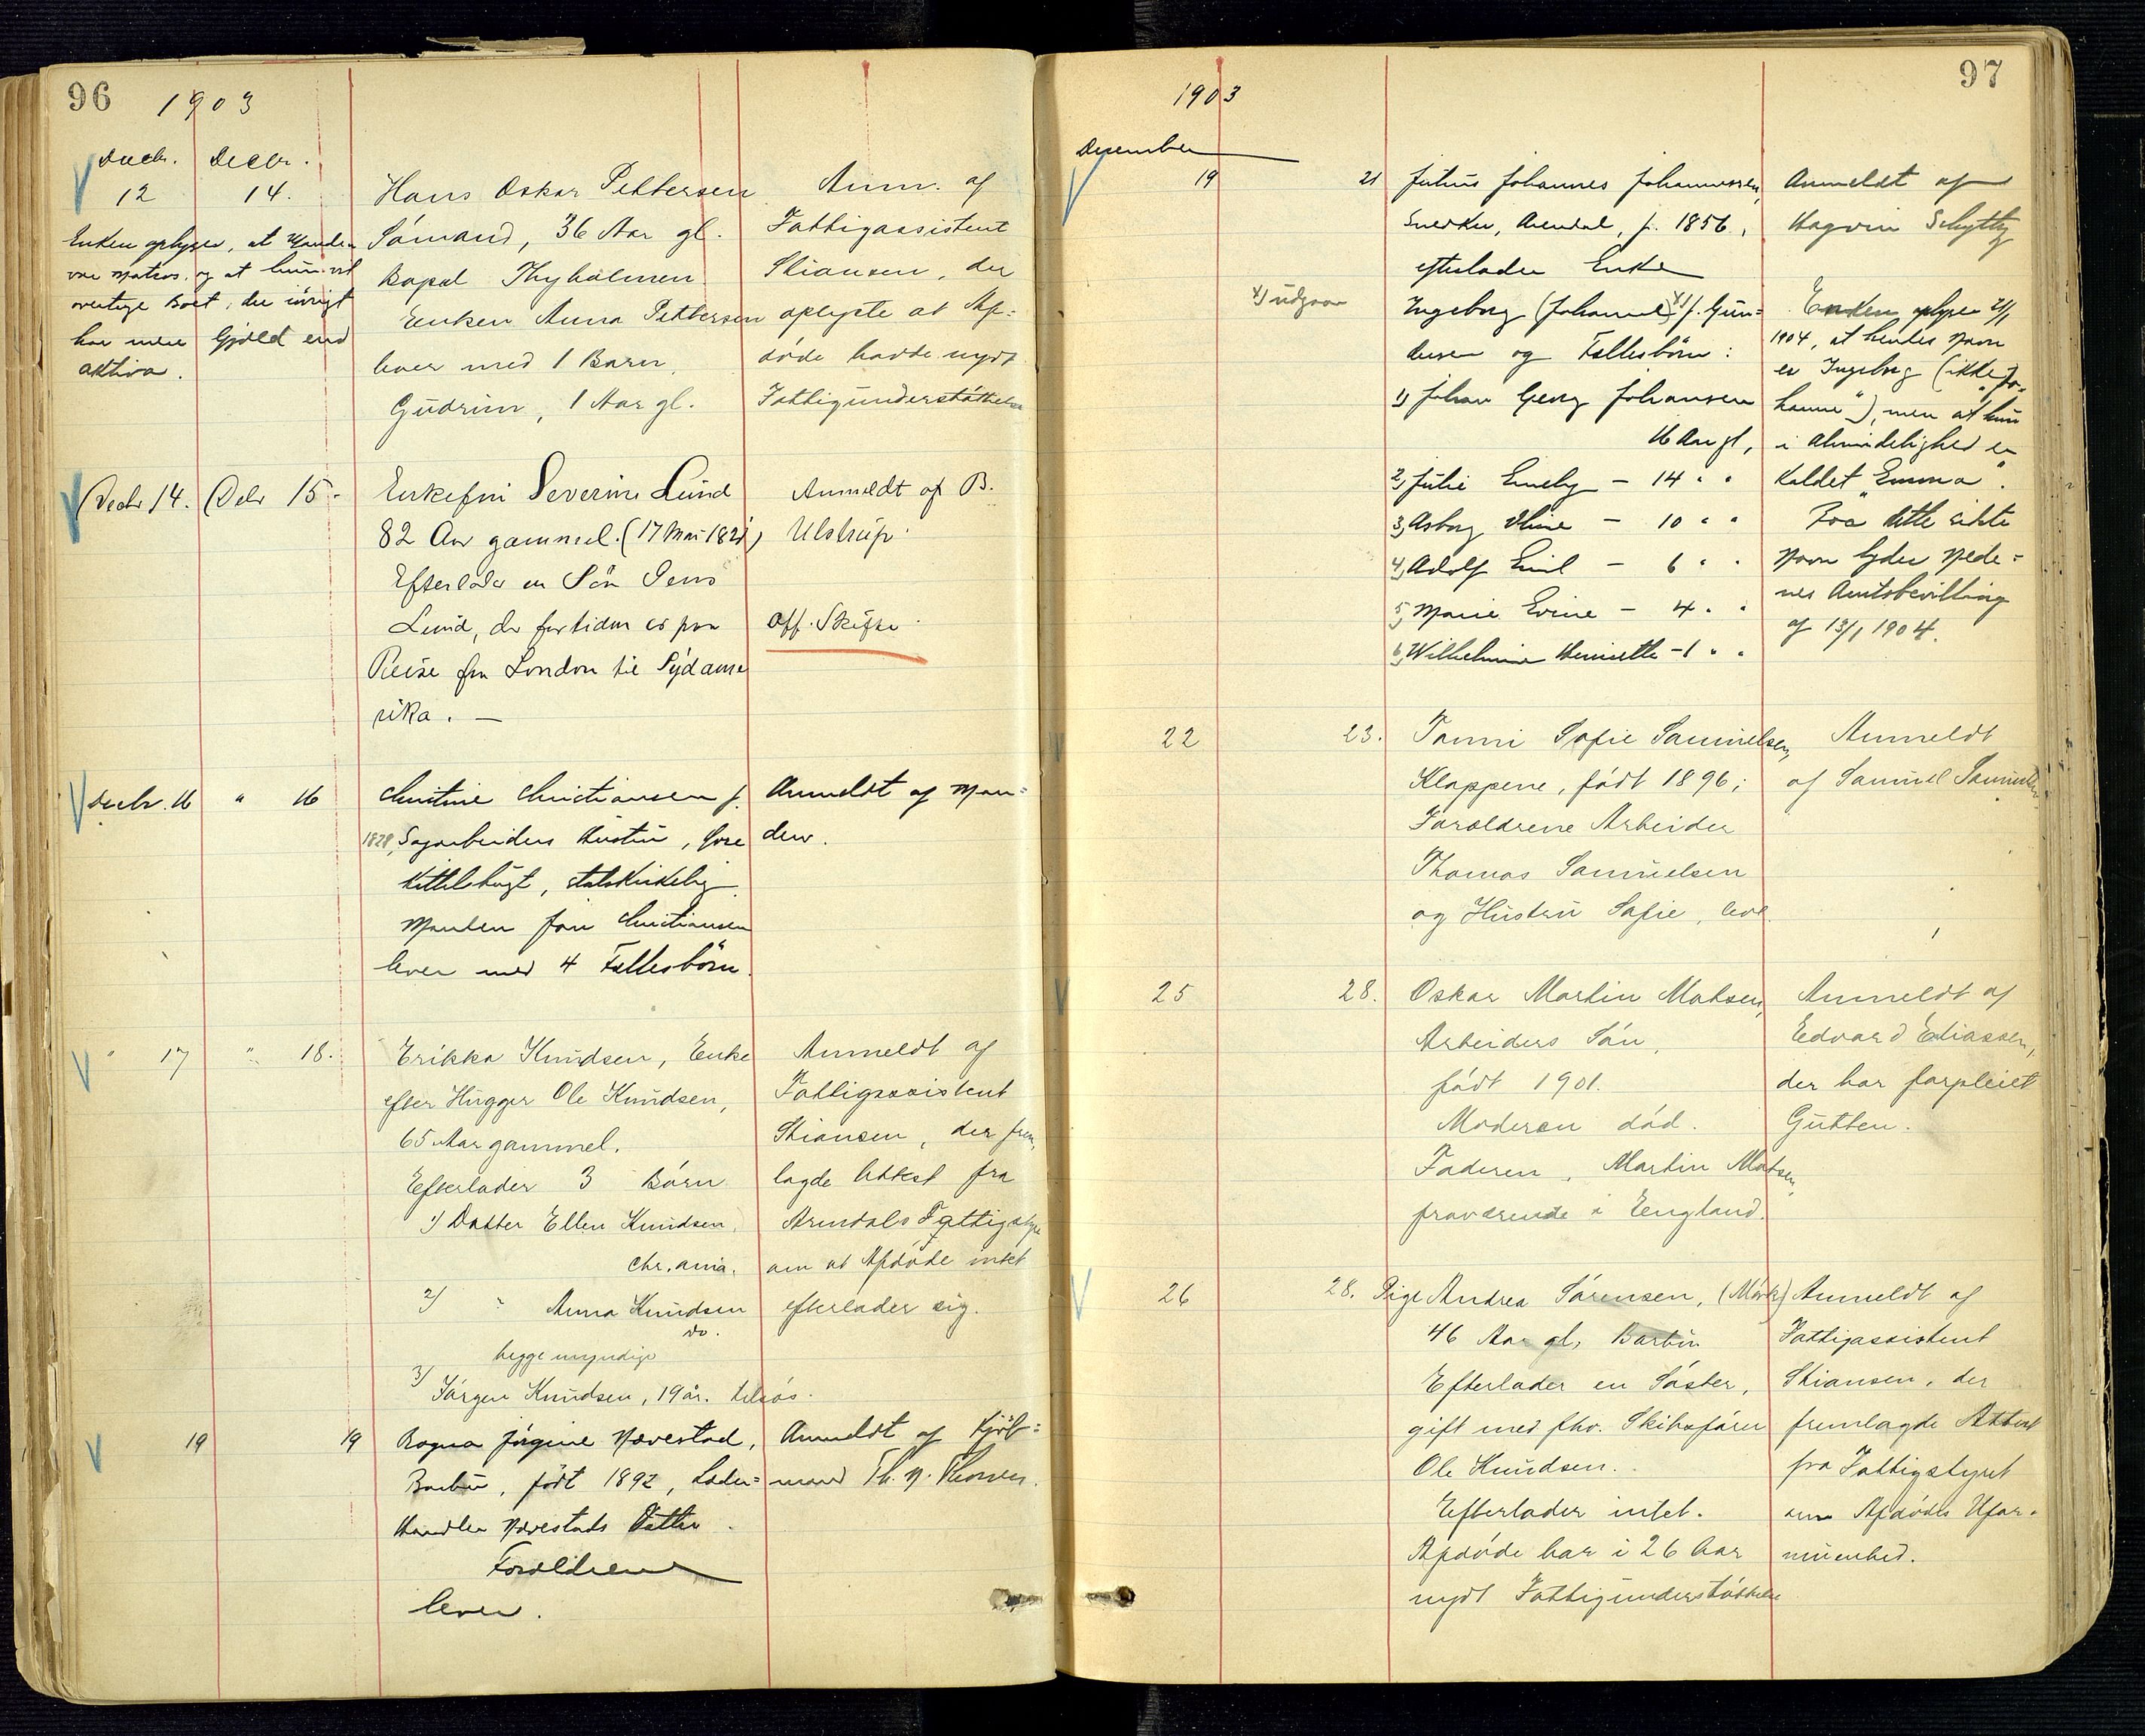 96
1903
Decbr. Decbr.
12 14.
Enken oplyser, at Manden
var Matros, og at hun vil
overtage Boet, der iövrigt
har mere Gjæld end
aktiva.
Hans Oskar Pettersen
Sömand, 36 Aar gl.
Bopæl Thyholmen
Enken Anna Pettersen
lever med 1 Barn,
Gudrun, 1 Aar gl.
Anm. af
Fattigassistent
Stiansen, der
oplyste at Af-
döde havde nydt
Fattigunderstöttelse
Decbr 14. Decbr 15.
Enkefru Severine Lund
82 Aar gammel. (17 Mai 1821)
Efterlader en Sön Jens
Lund, der for tiden er paa
Reise fra London til Sydame
rika. —
Anmeldt af B.
Ulstrup.
Off. Skifte.
Decbr. 16 " 16
Christine Christiansen f.
1828, Sagarbeiders Hustru,
Kittelsbugt, statskirkelig.
Manden Jon Christiansen
lever med 4 Fællesbörn.
Anmeldt af Man-
den.
" 17 " 18.
Erikka Knudsen, Enke
efter Hugger Ole Knudsen,
65 Aar gammel.
Efterlader 3 Börn
1) Datter Ellen Knudsen,
Chr.ania.
2) " Anna Knudsen
do.
begge myndige
3) Jörgen Knudsen, 19 år. tilsös.
Anmeldt af
Fattigassistent
Stiansen, der frem
lagde Attest fra
Arendals Fattigstyre
om at Afdöde intet
efterlader sig.
19 19
Ragna Jörgine Nævestad,
Barbu, født 1892, Læder-
handler Nævestads Datter.
Forældrene
lever.
Anmeldt af Kjöb-
mand Th. N. Thorsen.
97
1903
December
19 21
Julius Johannes Johannessen,
Snedker, Arendal, f. 1856,
efterlader Enke
x) udgaar
Ingeborg (Johanne) x) f. Gun-
dersen og Fællesbörn:
1) Johan Georg Johansen
16 Aar gl,
2) Julie Emely — 14 " "
3) Asborg — 10 " "
4) Adolf Emil — 6 " "
5) Marie Evine — 4 " "
6) Wilhelmine Henriette — 1 " "
Anmeldt af
Hagvin Schytte
Enken oplyser 21/1
1904, at hendes Navn
er Ingeborg (ikke "Jo-
hanne"), men at hun
i Almindelighed er
kaldet "Emma".
Paa dette sidste
Navn lyder Nede-
nes Amtsbevilling
af 13/1 1904.
22 23.
Tomni Sofie Samuelsen,
Kloppene, födt 1896;
Forældrene Arbeider
Thomas Samuelsen
og Hustru Sofie, leve.
Anmeldt
af Samuel Samuelsen.
25 28.
Oskar Martin Matsen,
Arbeiders Sön,
födt 1901.
Moderen död.
Faderen, Martin Matsen,
fraværende i England.
Anmeldt af
Edvard Eliassen,
der har forpleiet
Gutten.
26 28.
Pige Andrea Sörensen, (Mörk)
46 Aar gl, Barbu
Efterlader en Söster,
gift med fhv. Skibsförer
Ole Knudsen.
Efterlader intet.
Afdöde har i 26 Aar
nydt Fattigunderstöttelse
Anmeldt af
Fattigassistent
Stiansen, der
fremlagde Attest
fra Fattigstyret
om Afdödes Ufor-
muenhed.